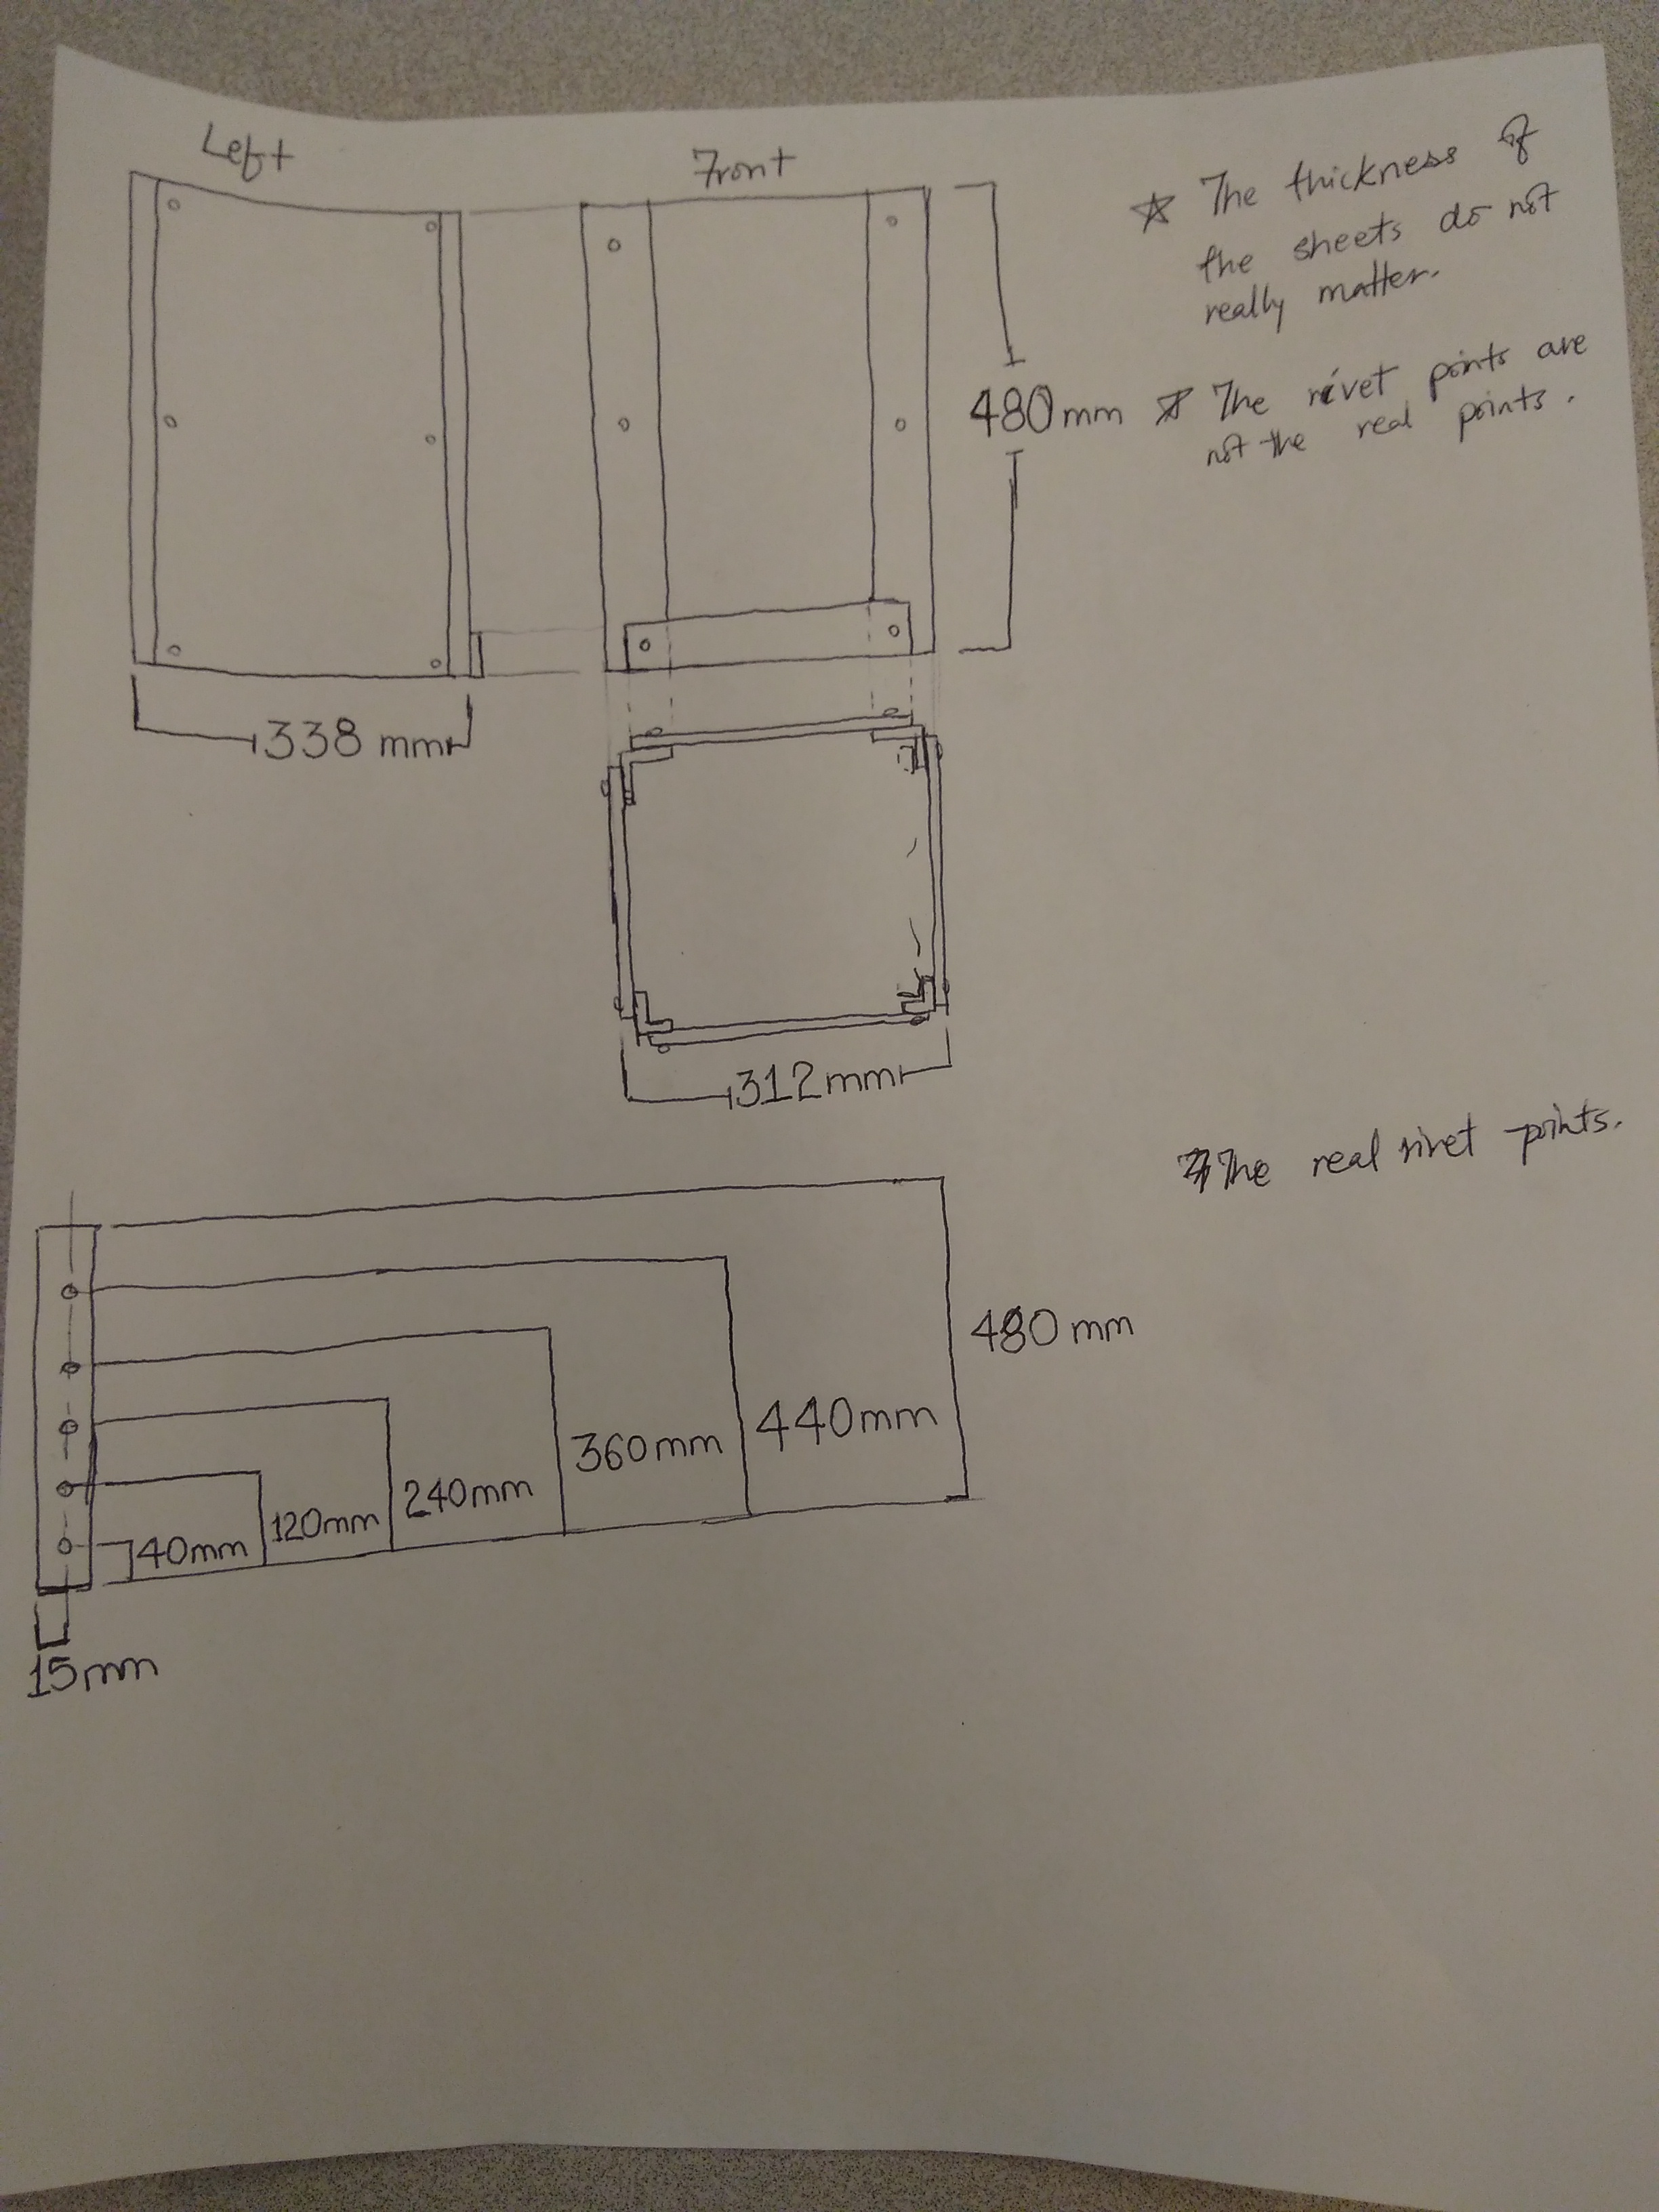 Left
Front
☆ The thickness of
the sheets do not
really matter.
480mm
☆ The rivet points are
not the real points.
338 mm
312mm
The real rivet points.
480mm
440mm
360mm
240mm
120mm
40mm
15mm